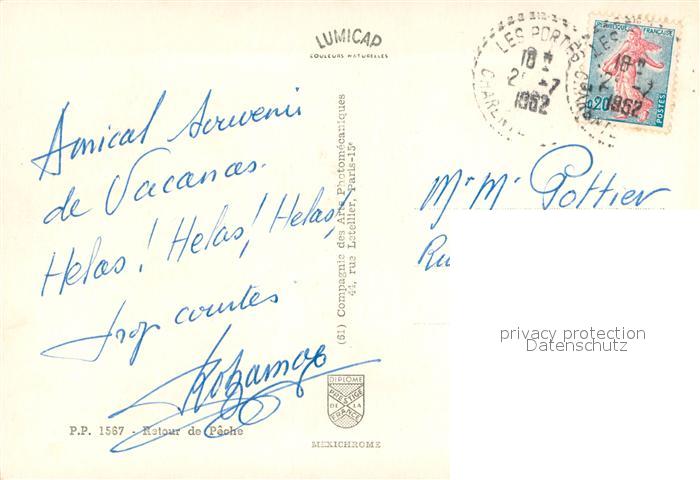 LUMICAP
COULEURS NATURELLES
Amical Souvenir
de Vacances.
Helas! Helas! Helas,
trop courtes
P.P. 1567 - Retour de Pêche
(61) Compagnie des Arts Photomécaniques
44, rue Letellier, Paris-15e
DIPLOME
PRESTIGE
DE LA
FRANCE
MEXICHROME
LES PORTES
18 H
2 -7
1962
CHARENTE
LES
18 H
2 -7
1962
REPUBLIQUE FRANÇAISE
0,20
POSTES
Mr Me Pottier
Ru
privacy protection
Datenschutz